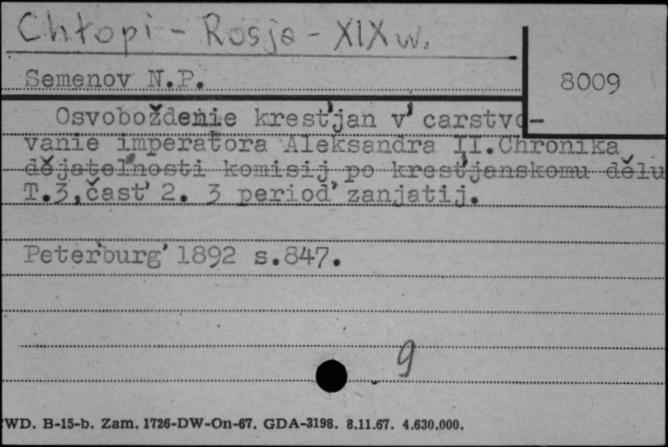 Chłopi - Rosja - XIX w.
Semenov N.P.
8009
Osvoboždenie krest'jan v' carstvo-
vanie imperatora Aleksandra II.Chronika
dějatel'nosti komisij po krest'janskomu dělu
T.3,čast' 2. 3 period' zanjatij.
Peterburg' 1892 s.847.
9
WD. B-15-b. Zam. 1726-DW-On-67. GDA-3198. 8.11.67. 4.630.000.